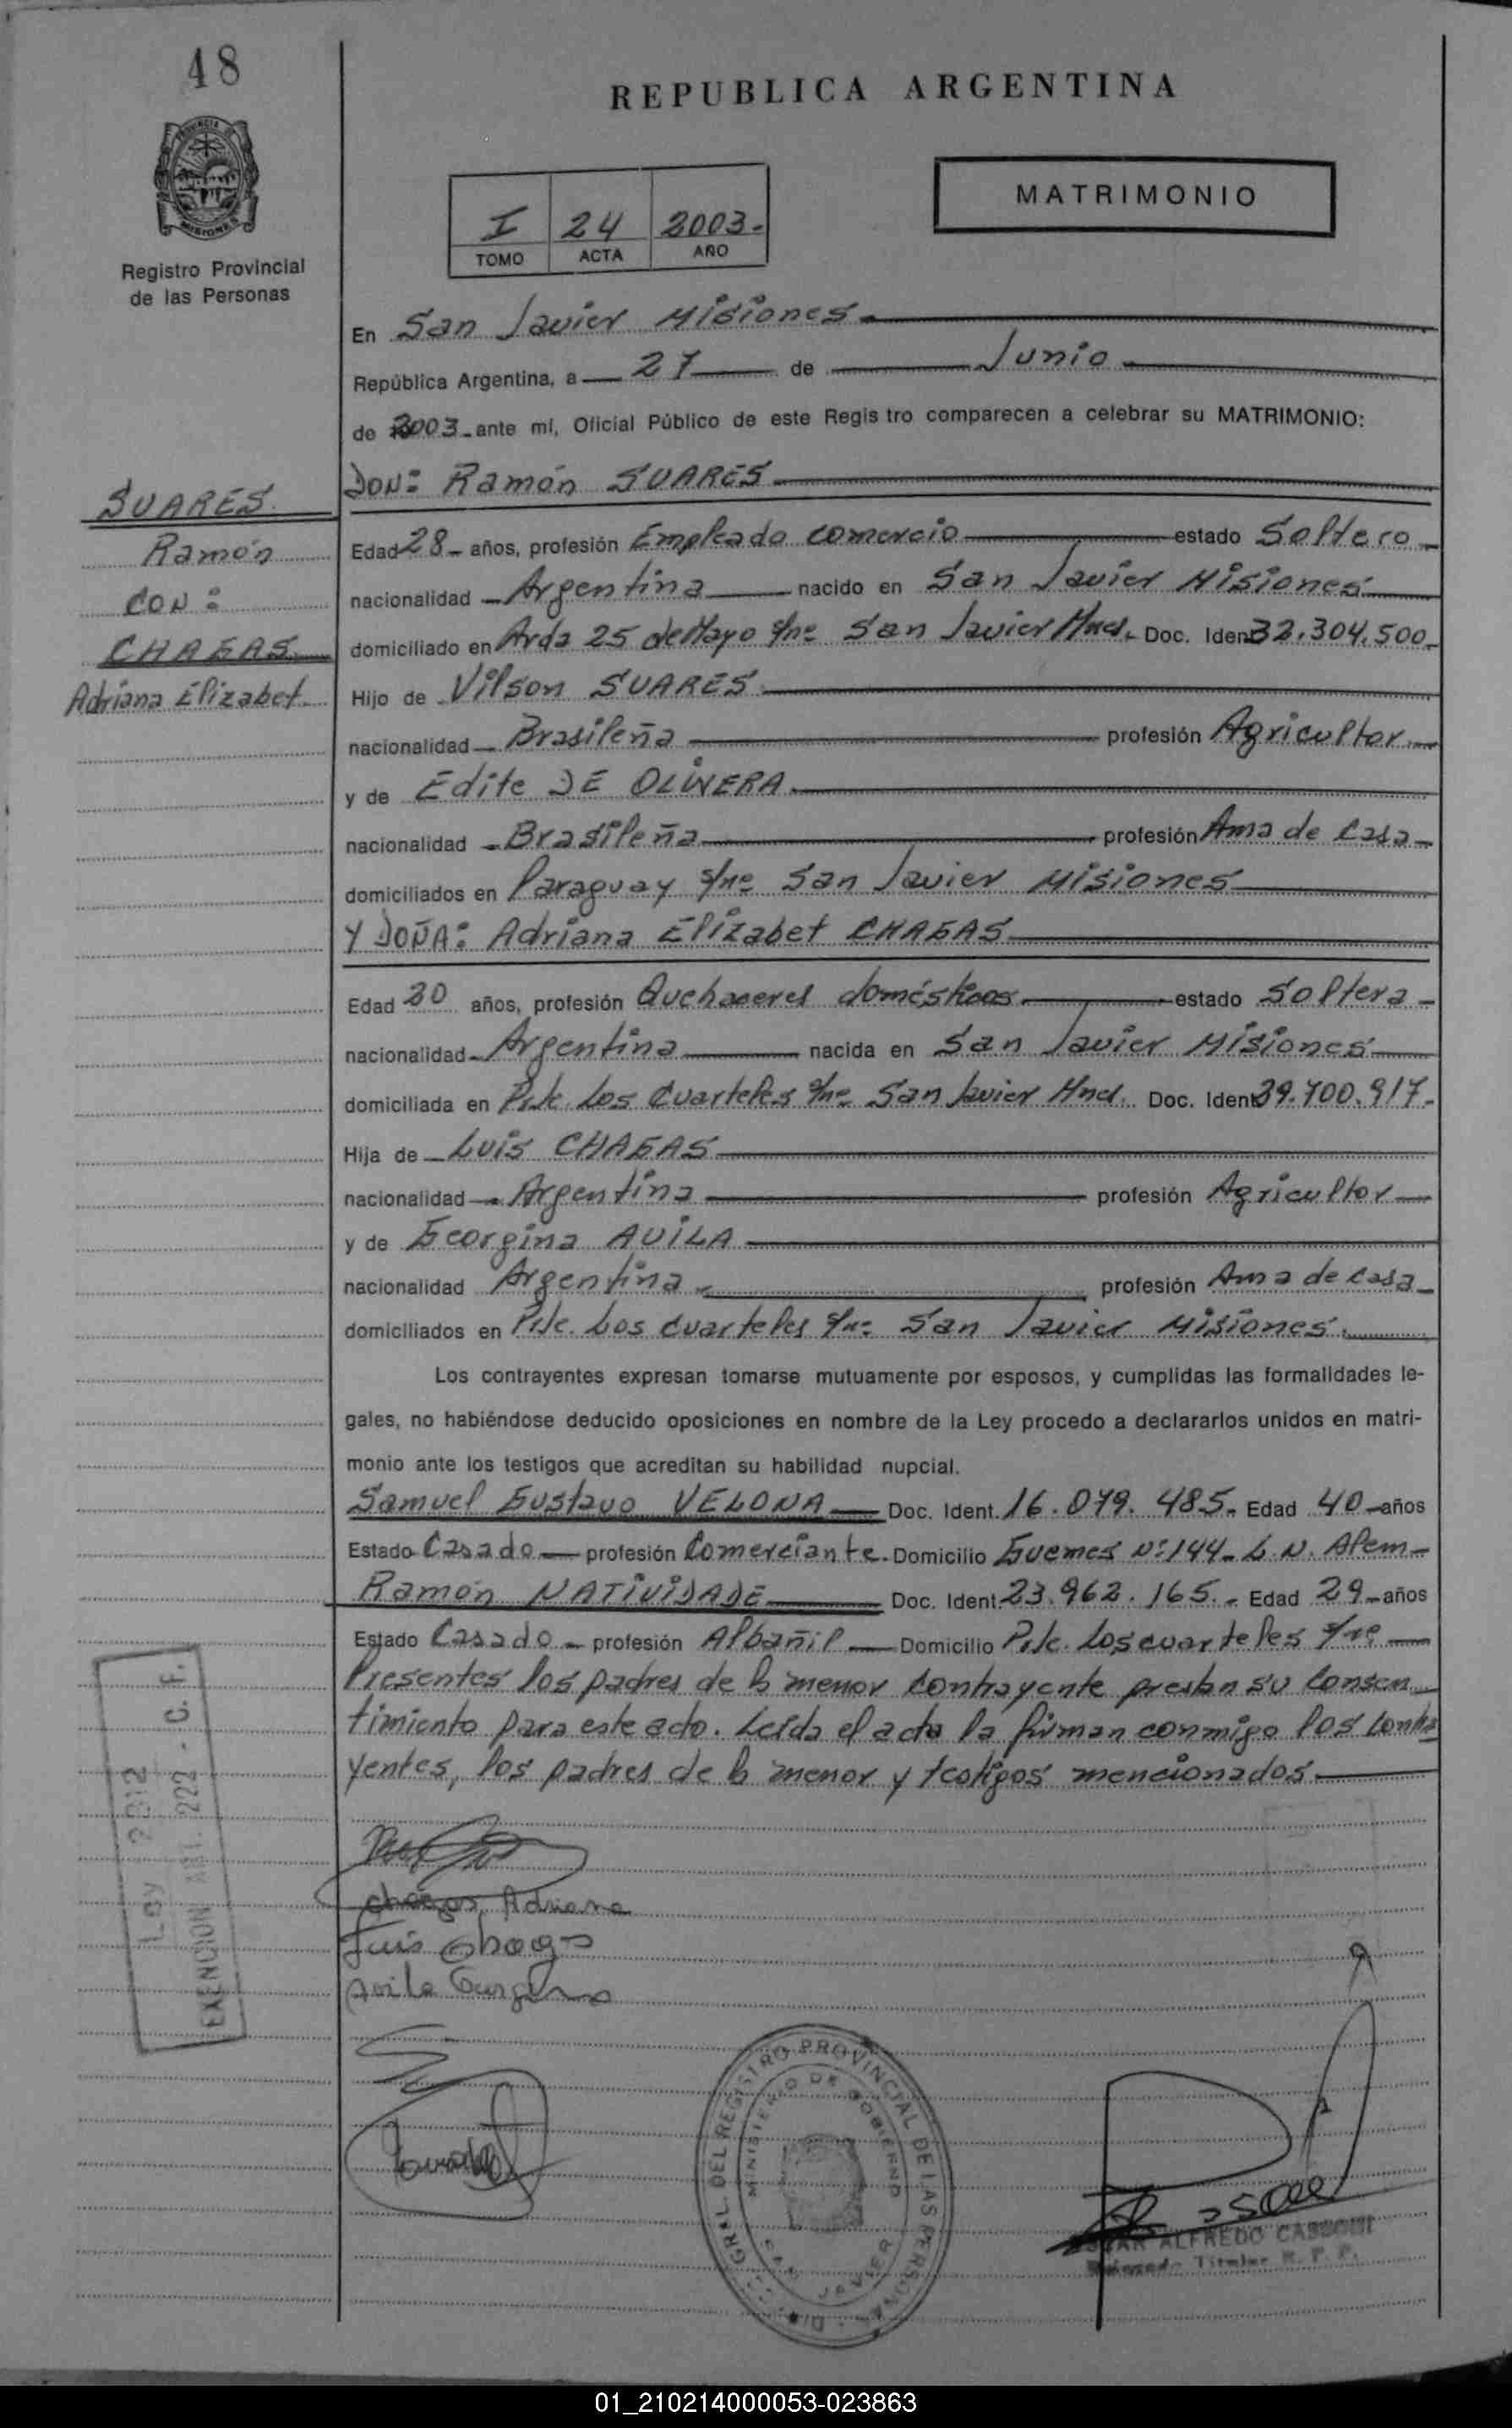 48
REPUBLICA ARGENTINA
PROVINCIA DE
MISIONES
Registro Provincial
de las Personas
MATRIMONIO
I 24 2003.-
TOMO ACTA AÑO
En San Javier Misiones.
República Argentina, a 27 de Junio
de 2003 ante mí, Oficial Público de este Regis tro comparecen a celebrar su MATRIMONIO:
DON: Ramón SUARES
SUARES
Ramón
CON:
CHAGAS
Adriana Elizabet
Edad 28 años, profesión Empleado comercio estado Soltero
nacionalidad Argentina nacido en San Javier Misiones
domiciliado en Avda 25 de Mayo s/nº San Javier Mnes. Doc. Ident 32.304.500
Hijo de Vilson SUARES
nacionalidad Brasileña profesión Agricultor
y de Edite DE OLIVERA
nacionalidad Brasileña profesión Ama de Casa
domiciliados en Paraguay s/nº San Javier Misiones
Y DOÑA: Adriana Elizabet CHAGAS
Edad 20 años, profesión Quehaceres domésticos estado Soltera
nacionalidad Argentina nacida en San Javier Misiones
domiciliada en Pje. Los Cuarteles s/nº San Javier Mnes. Doc. Ident 39.700.917
Hija de Luis CHAGAS
nacionalidad Argentina profesión Agricultor
y de Georgina AVILA
nacionalidad Argentina profesión Ama de casa
domiciliados en Pje. Los cuarteles s/nº San Javier Misiones.
Los contrayentes expresan tomarse mutuamente por esposos, y cumplidas las formalidades le-
gales, no habiéndose deducido oposiciones en nombre de la Ley procedo a declararlos unidos en matri-
monio ante los testigos que acreditan su habilidad nupcial.
Samuel Gustavo VELONA Doc. Ident. 16.079.485. Edad 40 años
Estado Casado profesión Comerciante. Domicilio Guemes Nº 144. L.N. Alem
Ramón NATIVIDADE Doc. Ident. 23.962.165. Edad 29 años
Estado Casado profesión Albañil Domicilio Pje. Los cuarteles s/nº
Presentes los padres de la menor contrayente prestan su consen
timiento para este acto. Leída el acta la firman conmigo los contra
yentes, los padres de la menor y testigos mencionados.
Ley 2312
EXENCION ART. 222 - C. F.
Chagas, Adriana
Luis Chagas
Avila
DIR. GRAL. DEL REGISTRO PROVINCIAL DE LAS PERSONAS
MINISTERIO DE GOBIERNO
SAN JAVIER
ALFREDO CASSONI
Titular R. P. P.
01_210214000053-023863